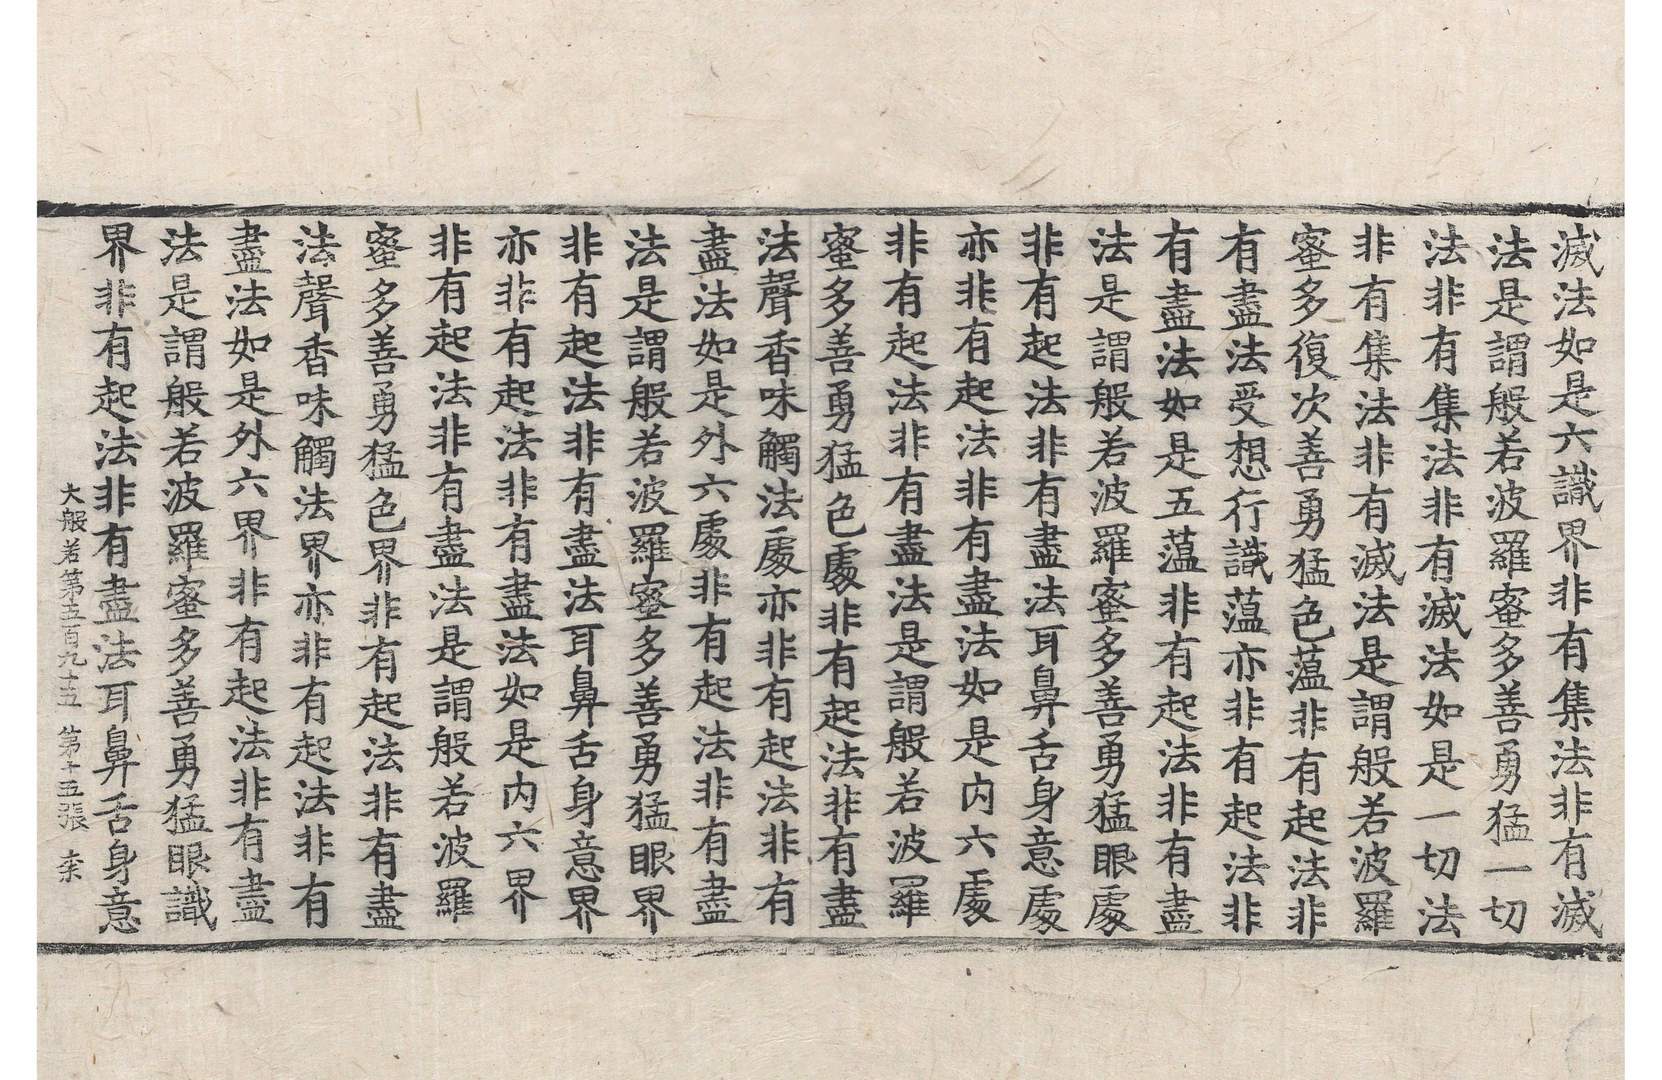 滅法如是六識界非有集法非有滅
法是謂般若波羅蜜多善勇猛一切
法非有集法非有滅法如是一切法
非有集法非有滅法是謂般若波羅
蜜多復次善勇猛色薀非有起法非
有盡法受想行識薀亦非有起法非
有盡法如是五薀非有起法非有盡
法是謂般若波羅蜜多善勇猛眼處
非有起法非有盡法耳鼻舌身意處
亦非有起法非有盡法如是内六處
非有起法非有盡法是謂般若波羅
蜜多善勇猛色處非有起法非有盡
法聲香味觸法處亦非有起法非有
盡法如是外六處非有起法非有盡
法是謂般若波羅蜜多善勇猛眼界
非有起法非有盡法耳鼻舌身意界
亦非有起法非有盡法如是内六界
非有起法非有盡法是謂般若波羅
蜜多善勇猛色界非有起法非有盡
法聲香味觸法界亦非有起法非有
盡法如是外六界非有起法非有盡
法是謂般若波羅蜜多善勇猛眼識
界非有起法非有盡法耳鼻舌身意
大般若第五百九十五 第十五張 柰